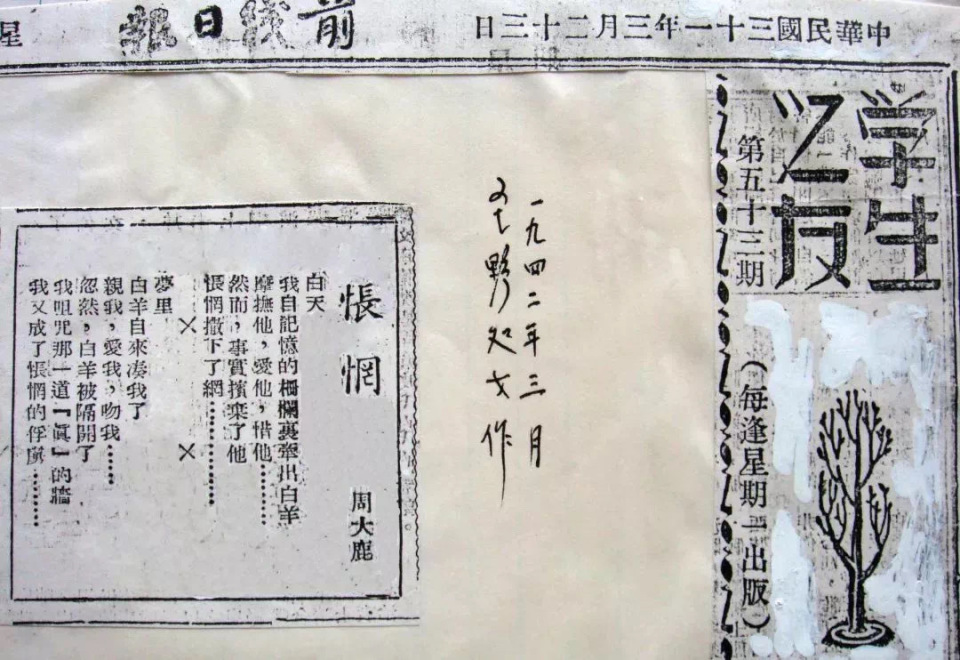 中華民國三十一年三月二十三日
前綫日報
星
学生
之友
第五十三期
(每逢星期一出版)
一九四二年三月
圣野处女作
悵惘
周大鹿
白天
我自記憶的柵欄裏牽出白羊
摩撫他,愛他,惜他……
然而,事實擯棄了他
悵惘撒下了網…………
× ×
夢里
白羊自來湊我了
親我,愛我,吻我……
忽然,白羊被隔開了
我咀咒那一道『眞』的牆
我又成了悵惘的俘虜……